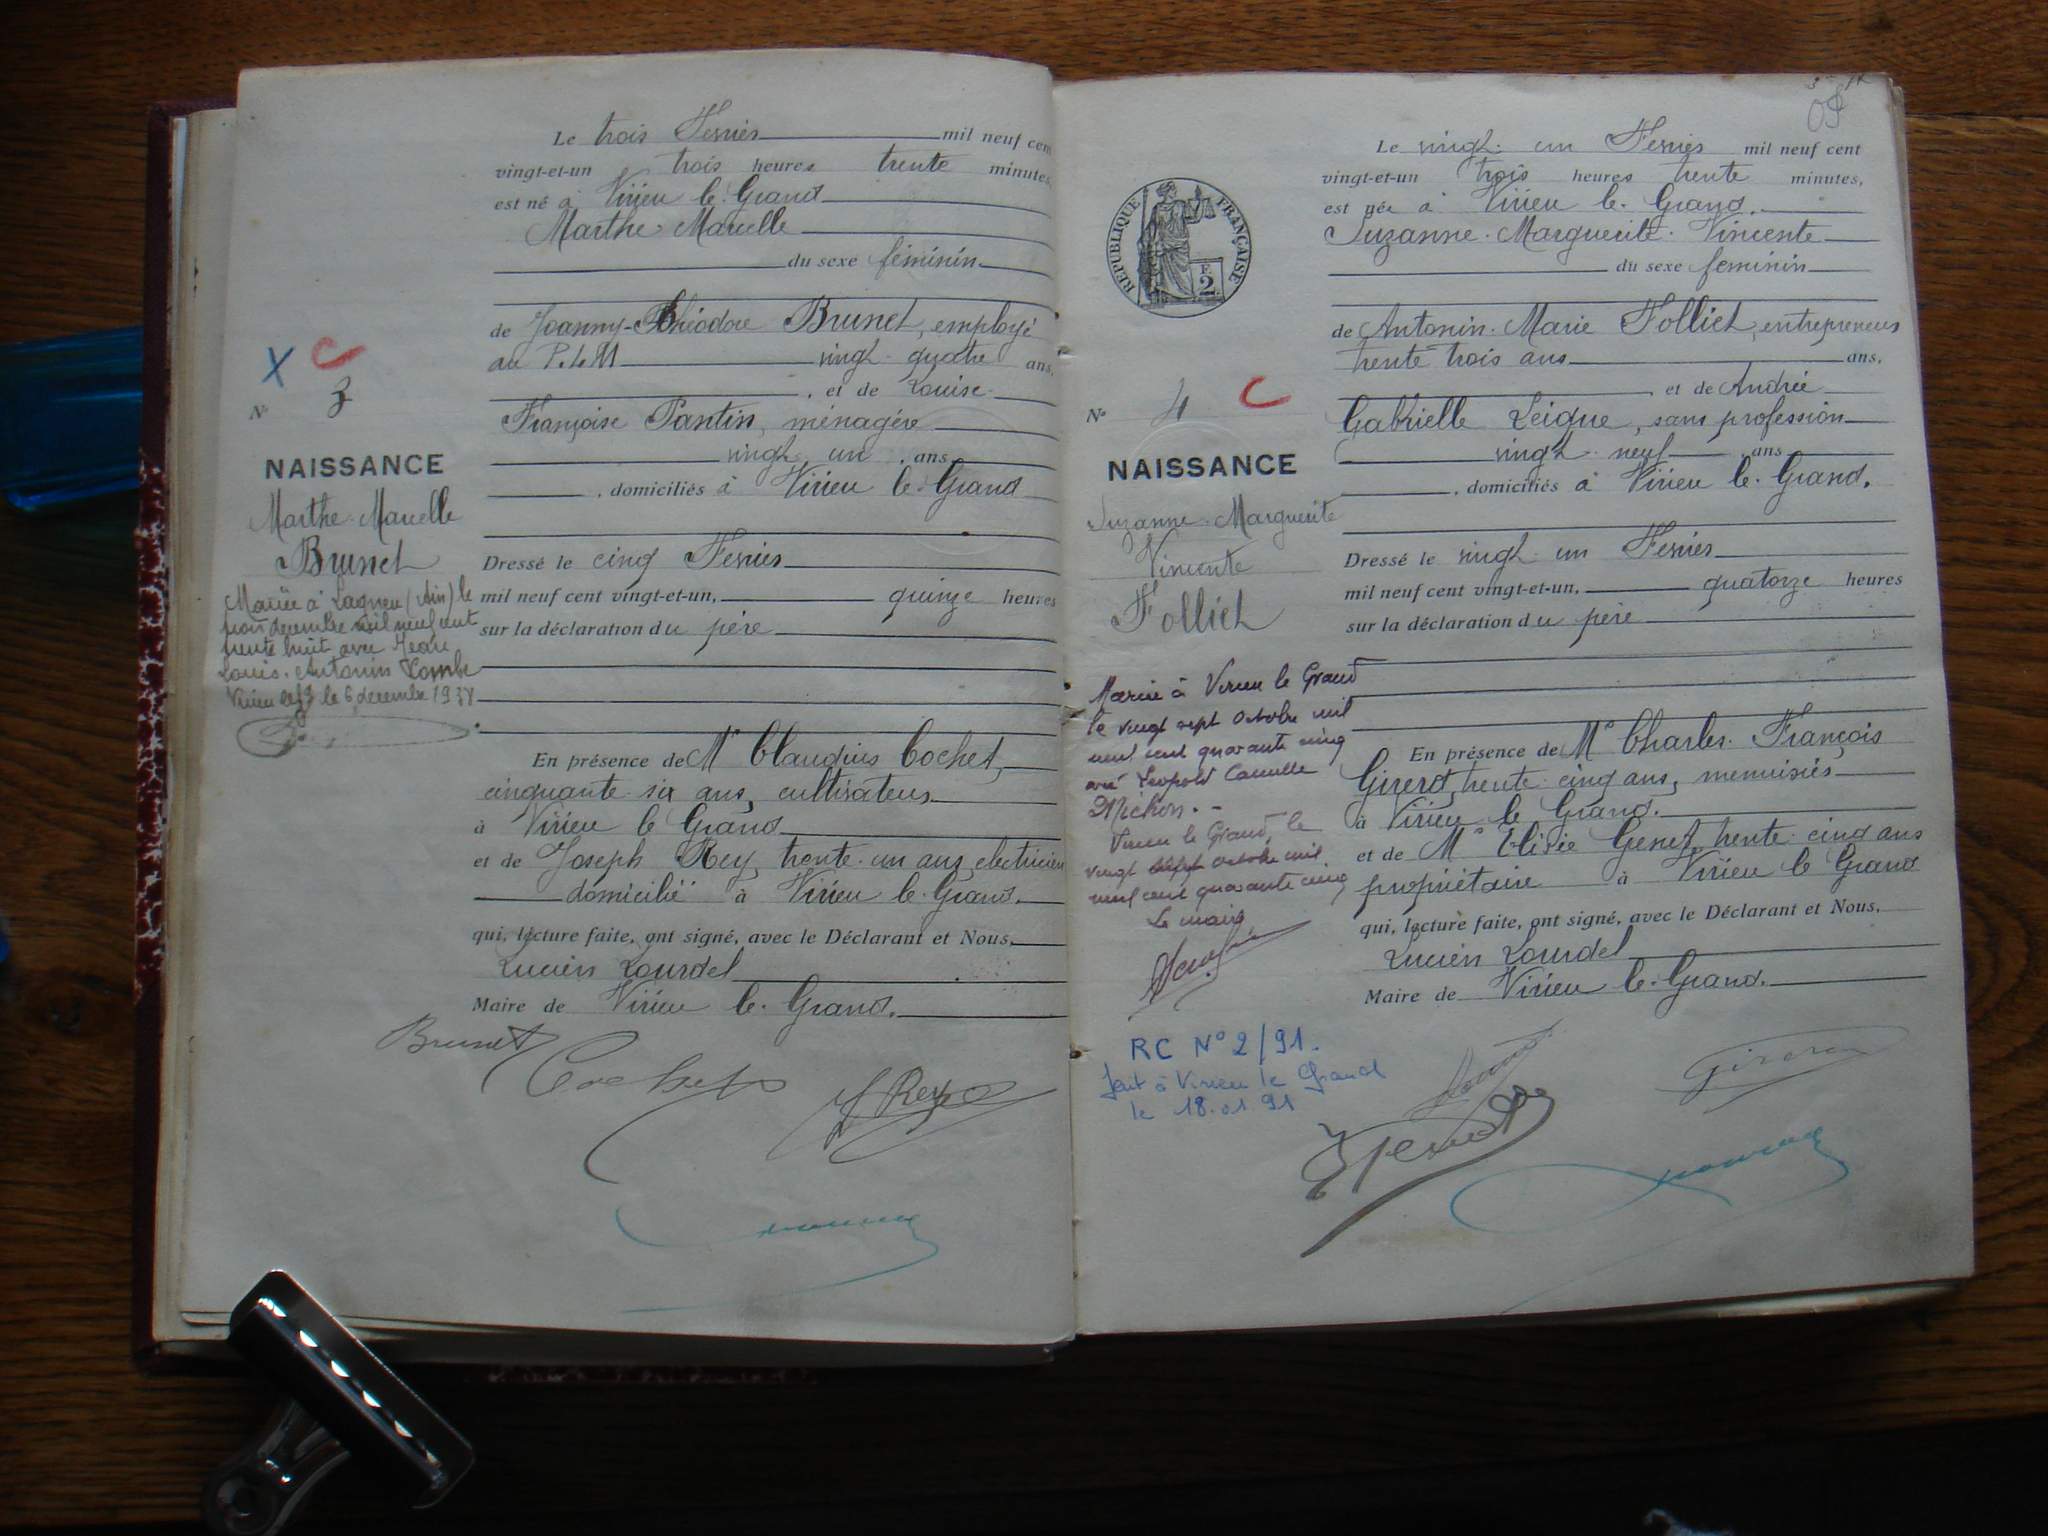 Le trois Fevrier mil neuf cen
vingt-et-un trois heures trente minutes,
est né à Virieu le Grand
Marthe Marcelle
du sexe féminin
de Joanny-Théodore Brunet, employé
au P.L.M vingt quatre ans,
, et de Louise
Française Pantin, ménagère
vingt un , ans
, domiciliés à Virieu le Grand
X C
N° 3
NAISSANCE
Marthe Marcelle
Brunet
Mariée à Lagnieu (Ain) le
trois decembre mil neuf cent
trente huit avec Jean
Louis Antonin
Virieu le gd le 6 decembre 1938
Dressé le cinq Fevrier
mil neuf cent vingt-et-un, quinze heures
sur la déclaration du père
En présence de Mr Claudius Cochet,
cinquante six ans, cultivateur
à Virieu le Grand
et de Joseph Rey, trente un ans, electricien
domicilié à Virieu le Grand.
qui, lecture faite, ont signé, avec le Déclarant et Nous,
Lucien Lourdel
Maire de Virieu le Grand.
Brunet
Cochet
J Rey
09
RÉPUBLIQUE FRANÇAISE
F.
2
Le vingt un Fevrier mil neuf cent
vingt-et-un trois heures trente minutes,
est née à Virieu le Grand.
Suzanne Marguerite Vincente
du sexe feminin
de Antonin Marie Folliet, entrepreneur
trente trois ans ans,
, et de Andrée
Gabrielle Leigue, sans profession
vingt neuf , ans
, domiciliés à Virieu le Grand.
N° 4 C
NAISSANCE
Suzanne Marguerite
Vincente
Folliet
Mariée à Virieu le Grand
le vingt sept octobre mil
neuf cent quarante cinq
avec Léopold Camille
Michon. -
Virieu le Grand, le
vingt sept octobre mil
neuf cent quarante cinq
Le maire
RC N° 2/91.
fait à Virieu le Grand
le 18.01 91
Dressé le vingt un Fevrier
mil neuf cent vingt-et-un, quatorze heures
sur la déclaration du père
En présence de Mr Charles François
Girerd, trente cinq ans, menuisier
à Virieu le Grand.
et de Mr Elisée Genet, trente cinq ans
propriétaire à Virieu le Grand
qui, lecture faite, ont signé, avec le Déclarant et Nous,
Lucien Lourdel
Maire de Virieu le Grand.
Girerd